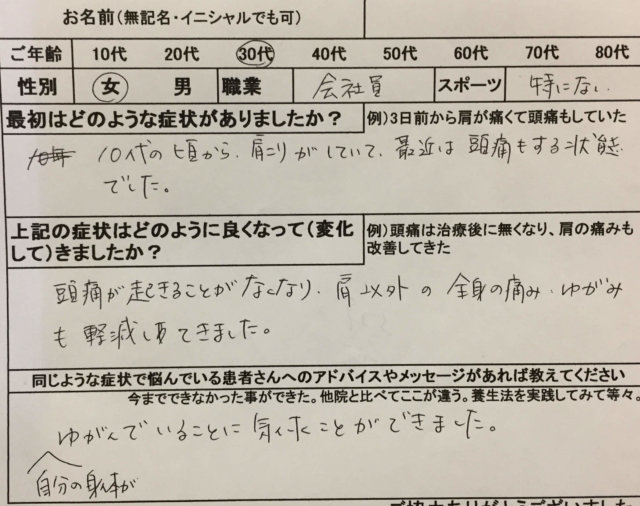 お名前(無記名・イニシャルでも可)
ご年齢 10代 20代 30代 40代 50代 60代 70代 80代
性別 女 男 職業 会社員 スポーツ 特にない
最初はどのような症状がありましたか? 例)3日前から肩が痛くて頭痛もしていた
10代の頃から、肩こりがしていて、最近は頭痛もする状態
でした。
上記の症状はどのように良くなって(変化 例)頭痛は治療後に無くなり、肩の痛みも
して)きましたか? 改善してきた
頭痛が起きることがなくなり、肩以外の全身の痛み、ゆがみ
も軽減してきました。
同じような症状で悩んでいる患者さんへのアドバイスやメッセージがあれば教えてください
今までできなかった事ができた。他院と比べてここが違う。養生法を実践してみて等々。
自分の身体が
ゆがんでいることに気付くことができました。